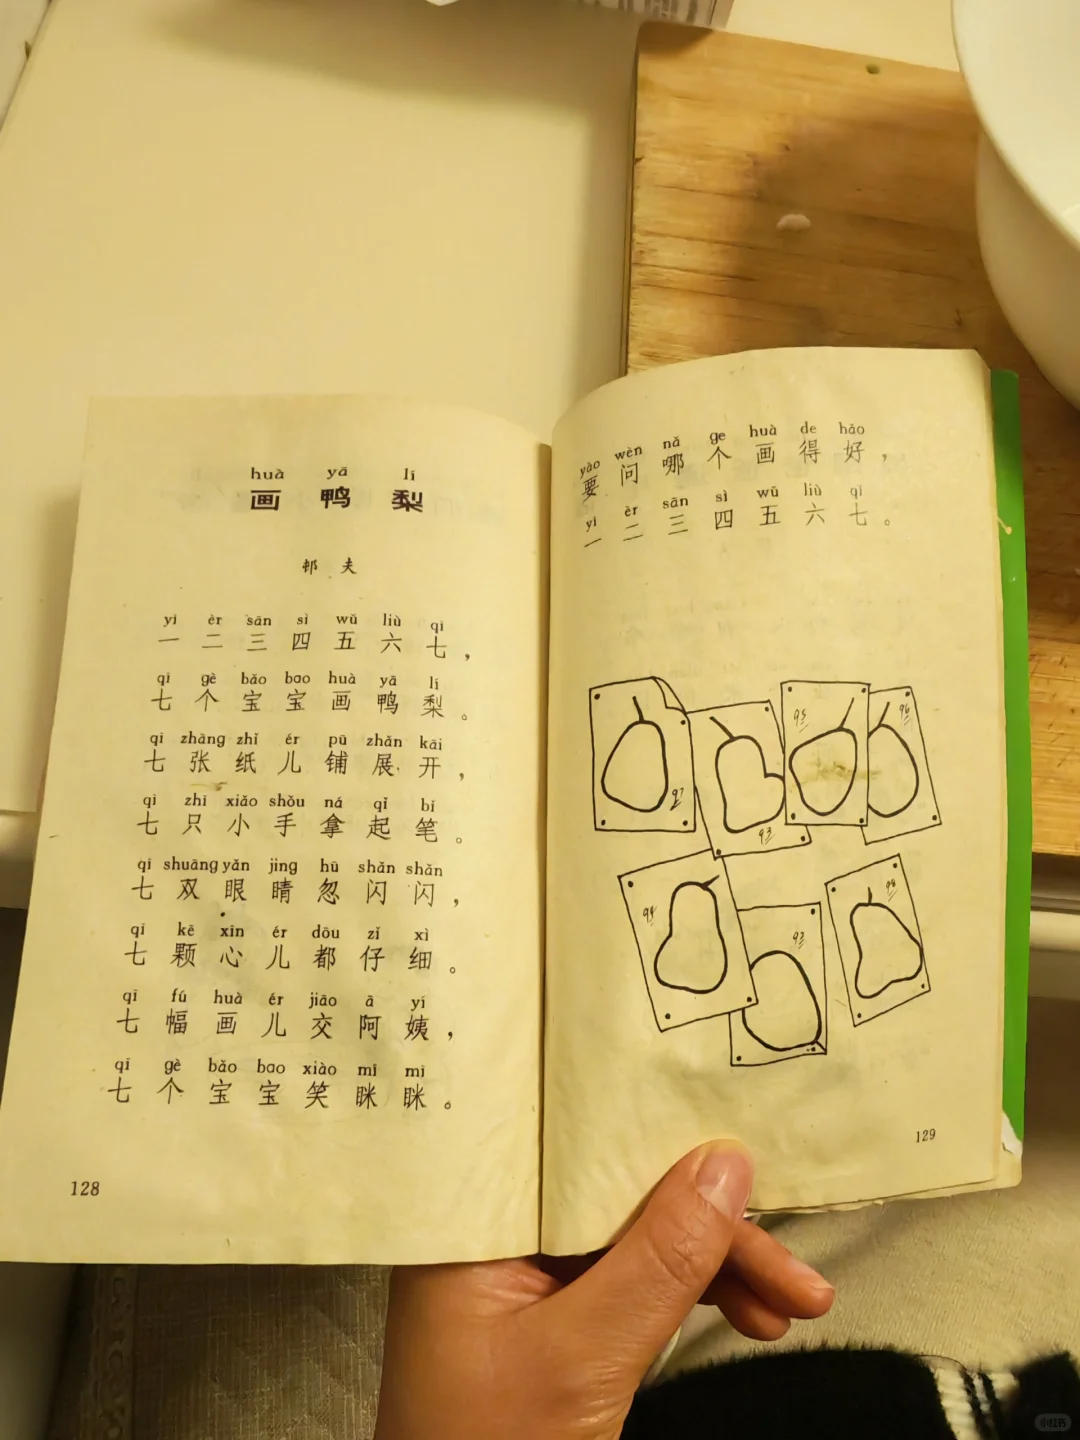 huà yā lí
画 鸭 梨
邨 夫
yi èr sān sì wǔ liù qī
一 二 三 四 五 六 七，
qī gè bǎo bao huà yā lí
七 个 宝 宝 画 鸭 梨。
qī zhāng zhǐ ér pū zhǎn kāi
七 张 纸 儿 铺 展 开，
qī zhī xiǎo shǒu ná qǐ bǐ
七 只 小 手 拿 起 笔。
qī shuāng yǎn jing hū shǎn shǎn
七 双 眼 睛 忽 闪 闪，
qī kē xīn ér dōu zǐ xì
七 颗 心 儿 都 仔 细。
qī fú huà ér jiāo ā yí
七 幅 画 儿 交 阿 姨，
qī gè bǎo bao xiào mī mī
七 个 宝 宝 笑 眯 眯。
128
yào wèn nǎ ge huà de hǎo
要 问 哪 个 画 得 好，
yi èr sān sì wǔ liù qī
一 二 三 四 五 六 七。
97
93
95
96
94
93
98
129
小红书